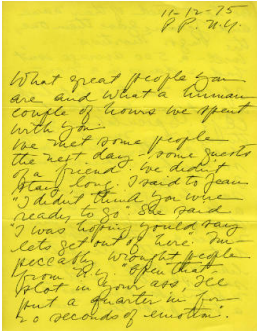 11-12-75
P.P. N.Y.
What great people you
are and what a human
couple of hours we spent
with you.
We met some people
the next day - some guests
of a friend. We didn't
stay long. I said to Jean
"I didn't think you were
ready to go." She said
"I was hoping you'd say
lets get out of here." Im-
peccably wrought people
from N.Y. "Open that
slot in your ass, I'll
put a quarter in for
20 seconds of emotion".